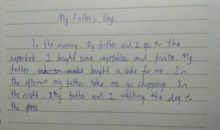 My Father's Day
In the morning. My father and I go to the
supermarket I bought some vegetables and fruits. My
father bought a cake for me. In
the afternoon my father take me go shopping. In
the night. My father and I walking the dog in
the